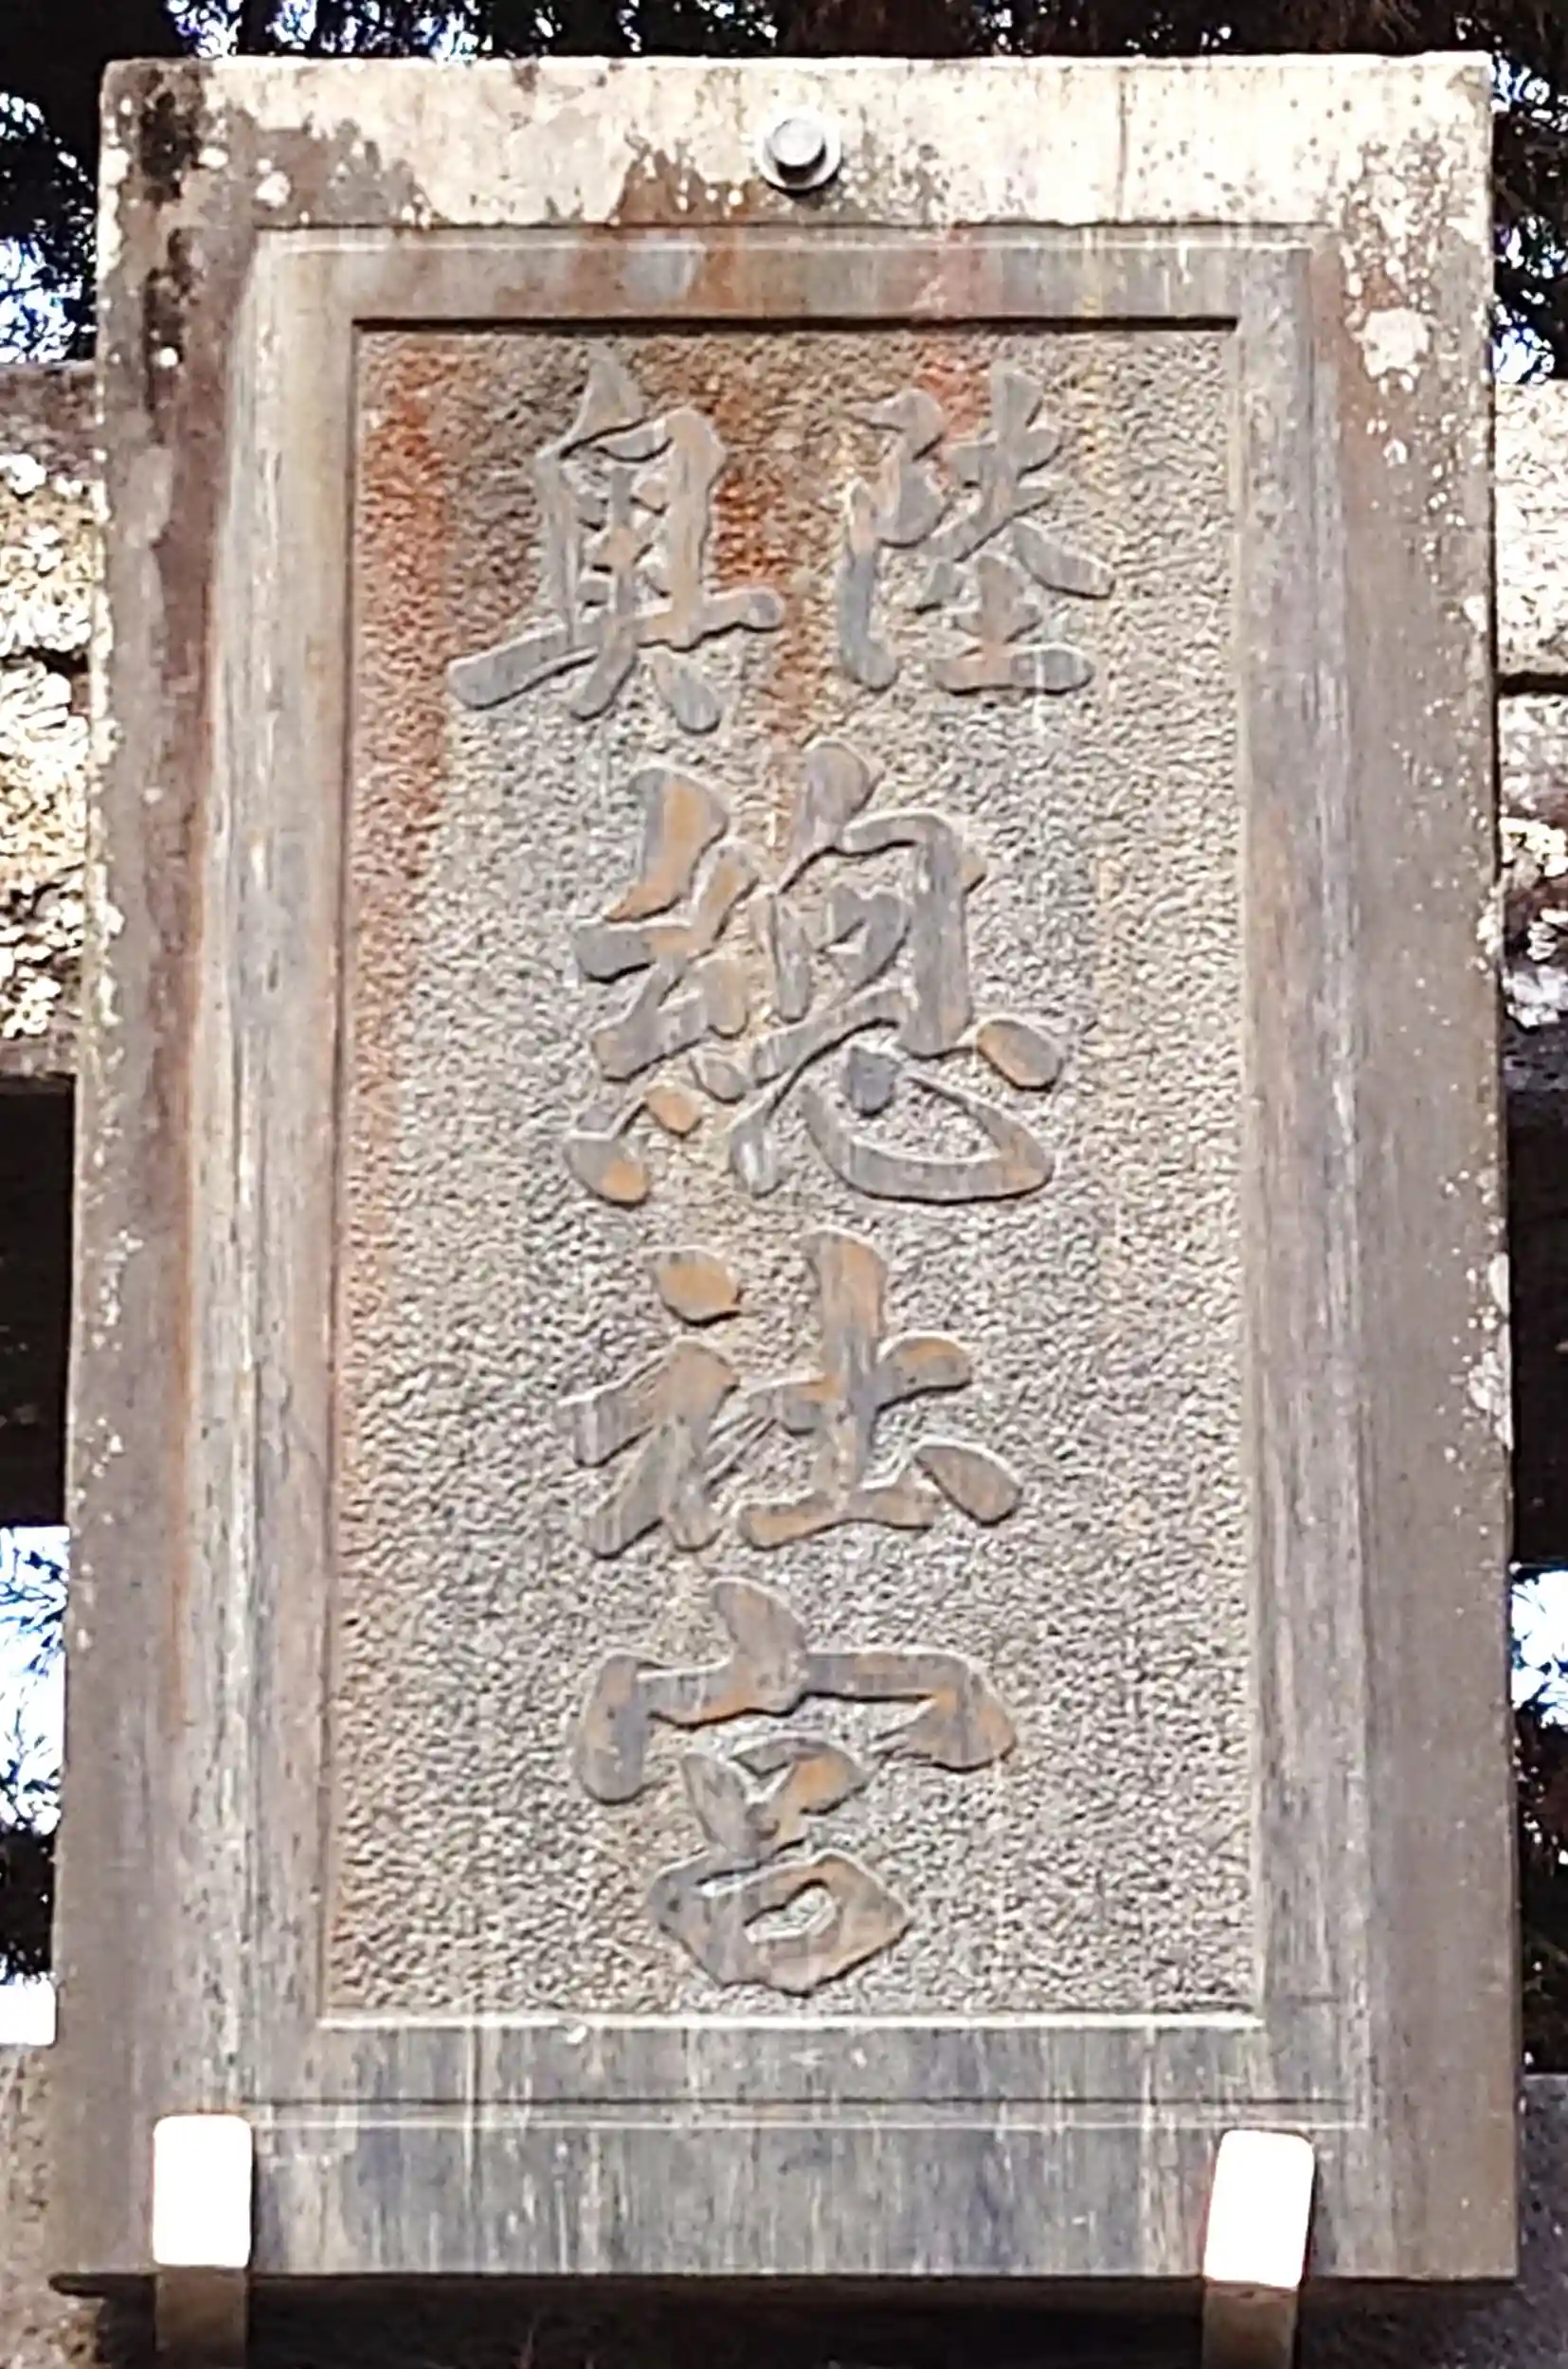 陸奥
總社宮